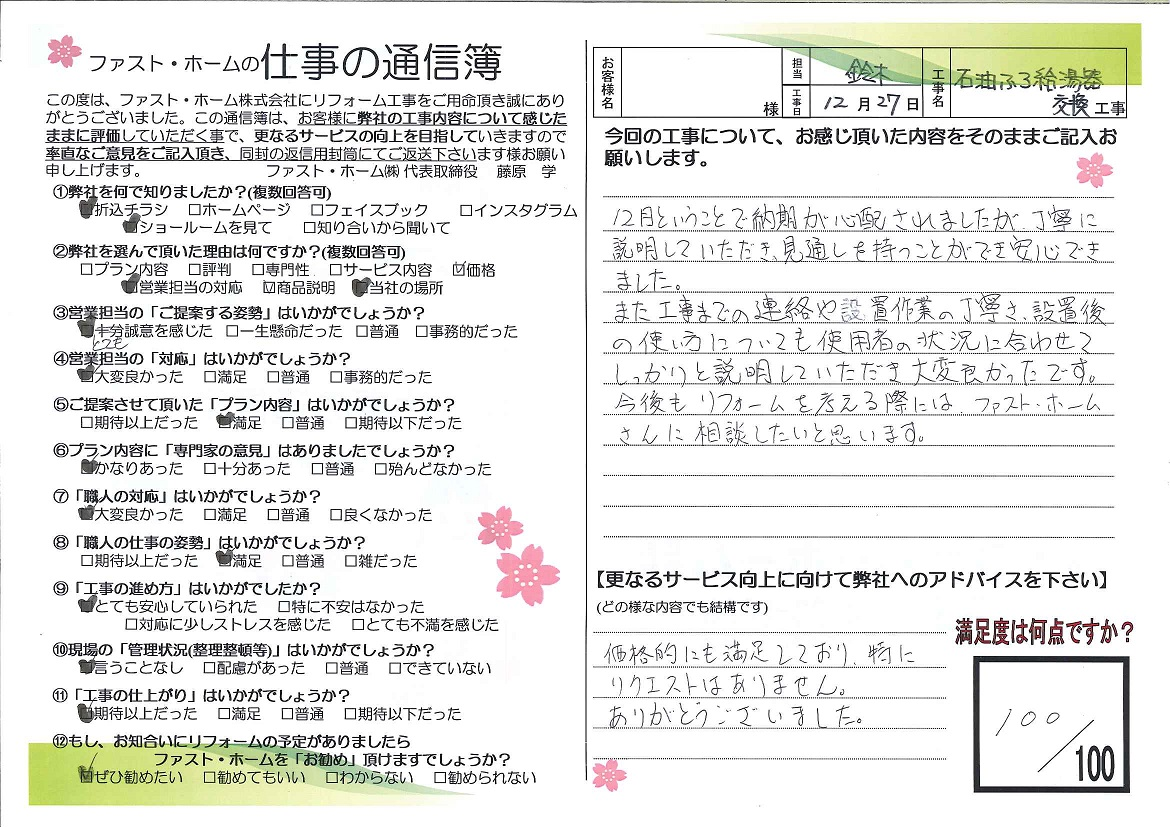 ファスト・ホームの仕事の通信簿
この度は、ファスト・ホーム株式会社にリフォーム工事をご用命頂き誠にあり
がとうございました。この通信簿は、お客様に弊社の工事内容について感じた
ままに評価していただく事で、更なるサービスの向上を目指していきますので
率直なご意見をご記入頂き、同封の返信用封筒にてご返送下さいます様お願い
申し上げます。 ファスト・ホーム㈱ 代表取締役 藤原 学
①弊社を何で知りましたか?(複数回答可)
☑折込チラシ □ホームページ □フェイスブック □インスタグラム
☑ショールームを見て □知り合いから聞いて
②弊社を選んで頂いた理由は何ですか?(複数回答可)
□プラン内容 □評判 □専門性 □サービス内容 ☑価格
☑営業担当の対応 ☑商品説明 ☑当社の場所
③営業担当の「ご提案する姿勢」はいかがでしょうか?
☑十分誠意を感じた □一生懸命だった □普通 □事務的だった
とても
④営業担当の「対応」はいかがでしょうか?
☑大変良かった □満足 □普通 □事務的だった
⑤ご提案させて頂いた「プラン内容」はいかがでしょうか?
□期待以上だった ☑満足 □普通 □期待以下だった
⑥プラン内容に「専門家の意見」はありましたでしょうか?
☑かなりあった □十分あった □普通 □殆んどなかった
⑦「職人の対応」はいかがでしょうか?
☑大変良かった □満足 □普通 □良くなかった
⑧「職人の仕事の姿勢」はいかがでしょうか?
□期待以上だった ☑満足 □普通 □雑だった
⑨「工事の進め方」はいかがでしたか?
☑とても安心していられた □特に不安はなかった
□対応に少しストレスを感じた □とても不満を感じた
⑩現場の「管理状況(整理整頓等)」はいかがでしょうか?
☑言うことなし □配慮があった □普通 □できていない
⑪「工事の仕上がり」はいかがでしょうか?
☑期待以上だった □満足 □普通 □期待以下だった
⑫もし、お知合いにリフォームの予定がありましたら
ファスト・ホームを「お勧め」頂けますでしょうか?
☑ぜひ勧めたい □勧めてもいい □わからない □勧められない
お客様名 様 担当 鈴木 工事日 12月27日 工事名 石油ふろ給湯器
交換工事
今回の工事について、お感じ頂いた内容をそのままご記入お
願いします。
12月ということで納期が心配されましたが、丁寧に
説明していただき、見通しを持つことができ安心でき
ました。
また工事までの連絡や設置作業の丁寧さ、設置後
の使い方についても使用者の状況に合わせて
しっかりと説明していただき大変良かったです。
今後もリフォームを考える際には、ファスト・ホーム
さんに相談したいと思います。
【更なるサービス向上に向けて弊社へのアドバイスを下さい】
(どの様な内容でも結構です)
価格的にも満足しており、特に
リクエストはありません。
ありがとうございました。
満足度は何点ですか?
100/100